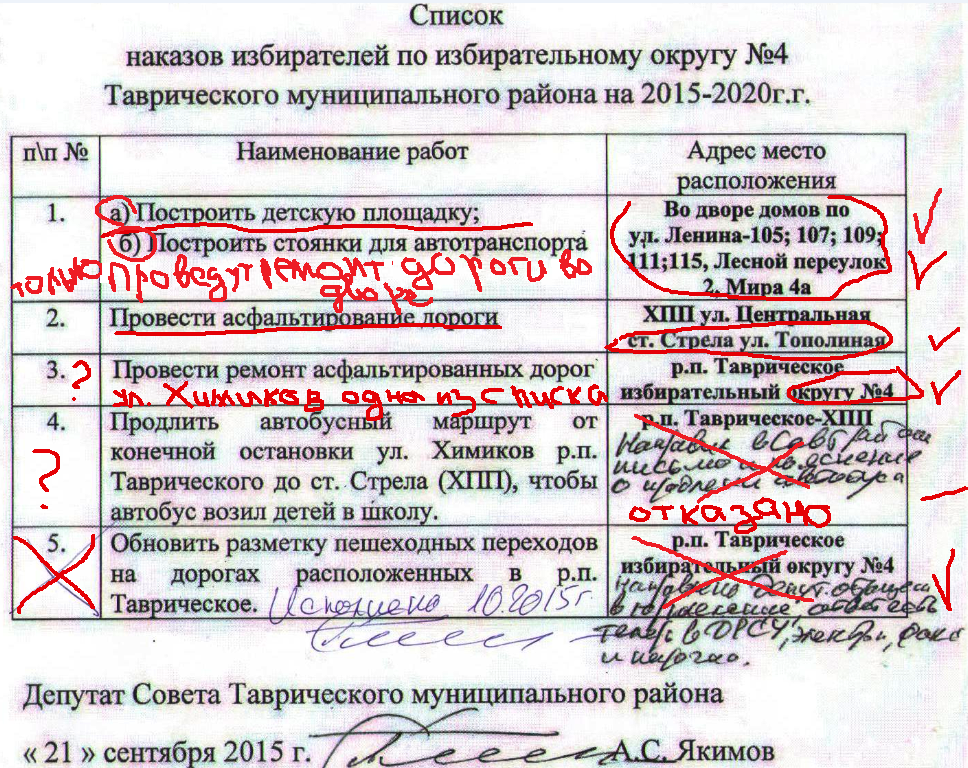 Список
наказов избирателей по избирательному округу №4
Таврического муниципального района на 2015-2020г.г.
п\п №
Наименование работ
Адрес место
расположения
1.
а) Построить детскую площадку;
б) Построить стоянки для автотранспорта
только Проведут ремонт дороги во
дворе
Во дворе домов по
ул. Ленина-105; 107; 109;
111;115, Лесной переулок
2, Мира 4а
2.
Провести асфальтирование дороги
ХПП ул. Центральная
ст. Стрела ул. Тополиная
3. ?
Провести ремонт асфальтированных дорог
ул. Химиков одна из списка
р.п. Таврическое
избирательный округу №4
4.
?
Продлить автобусный маршрут от
конечной остановки ул. Химиков р.п.
Таврического до ст. Стрела (ХПП), чтобы
автобус возил детей в школу.
р.п. Таврическое-ХПП
письмо
о продлении
отказано
5.
Обновить разметку пешеходных переходов
на дорогах расположенных в р.п.
Таврическое. Исполнено 10.2015г.
р.п. Таврическое
избирательный округу №4
в управление, ответ есть
теперь в ДРСУ, факс
и нарочно.
Депутат Совета Таврического муниципального района
« 21 » сентября 2015 г. А.С. Якимов